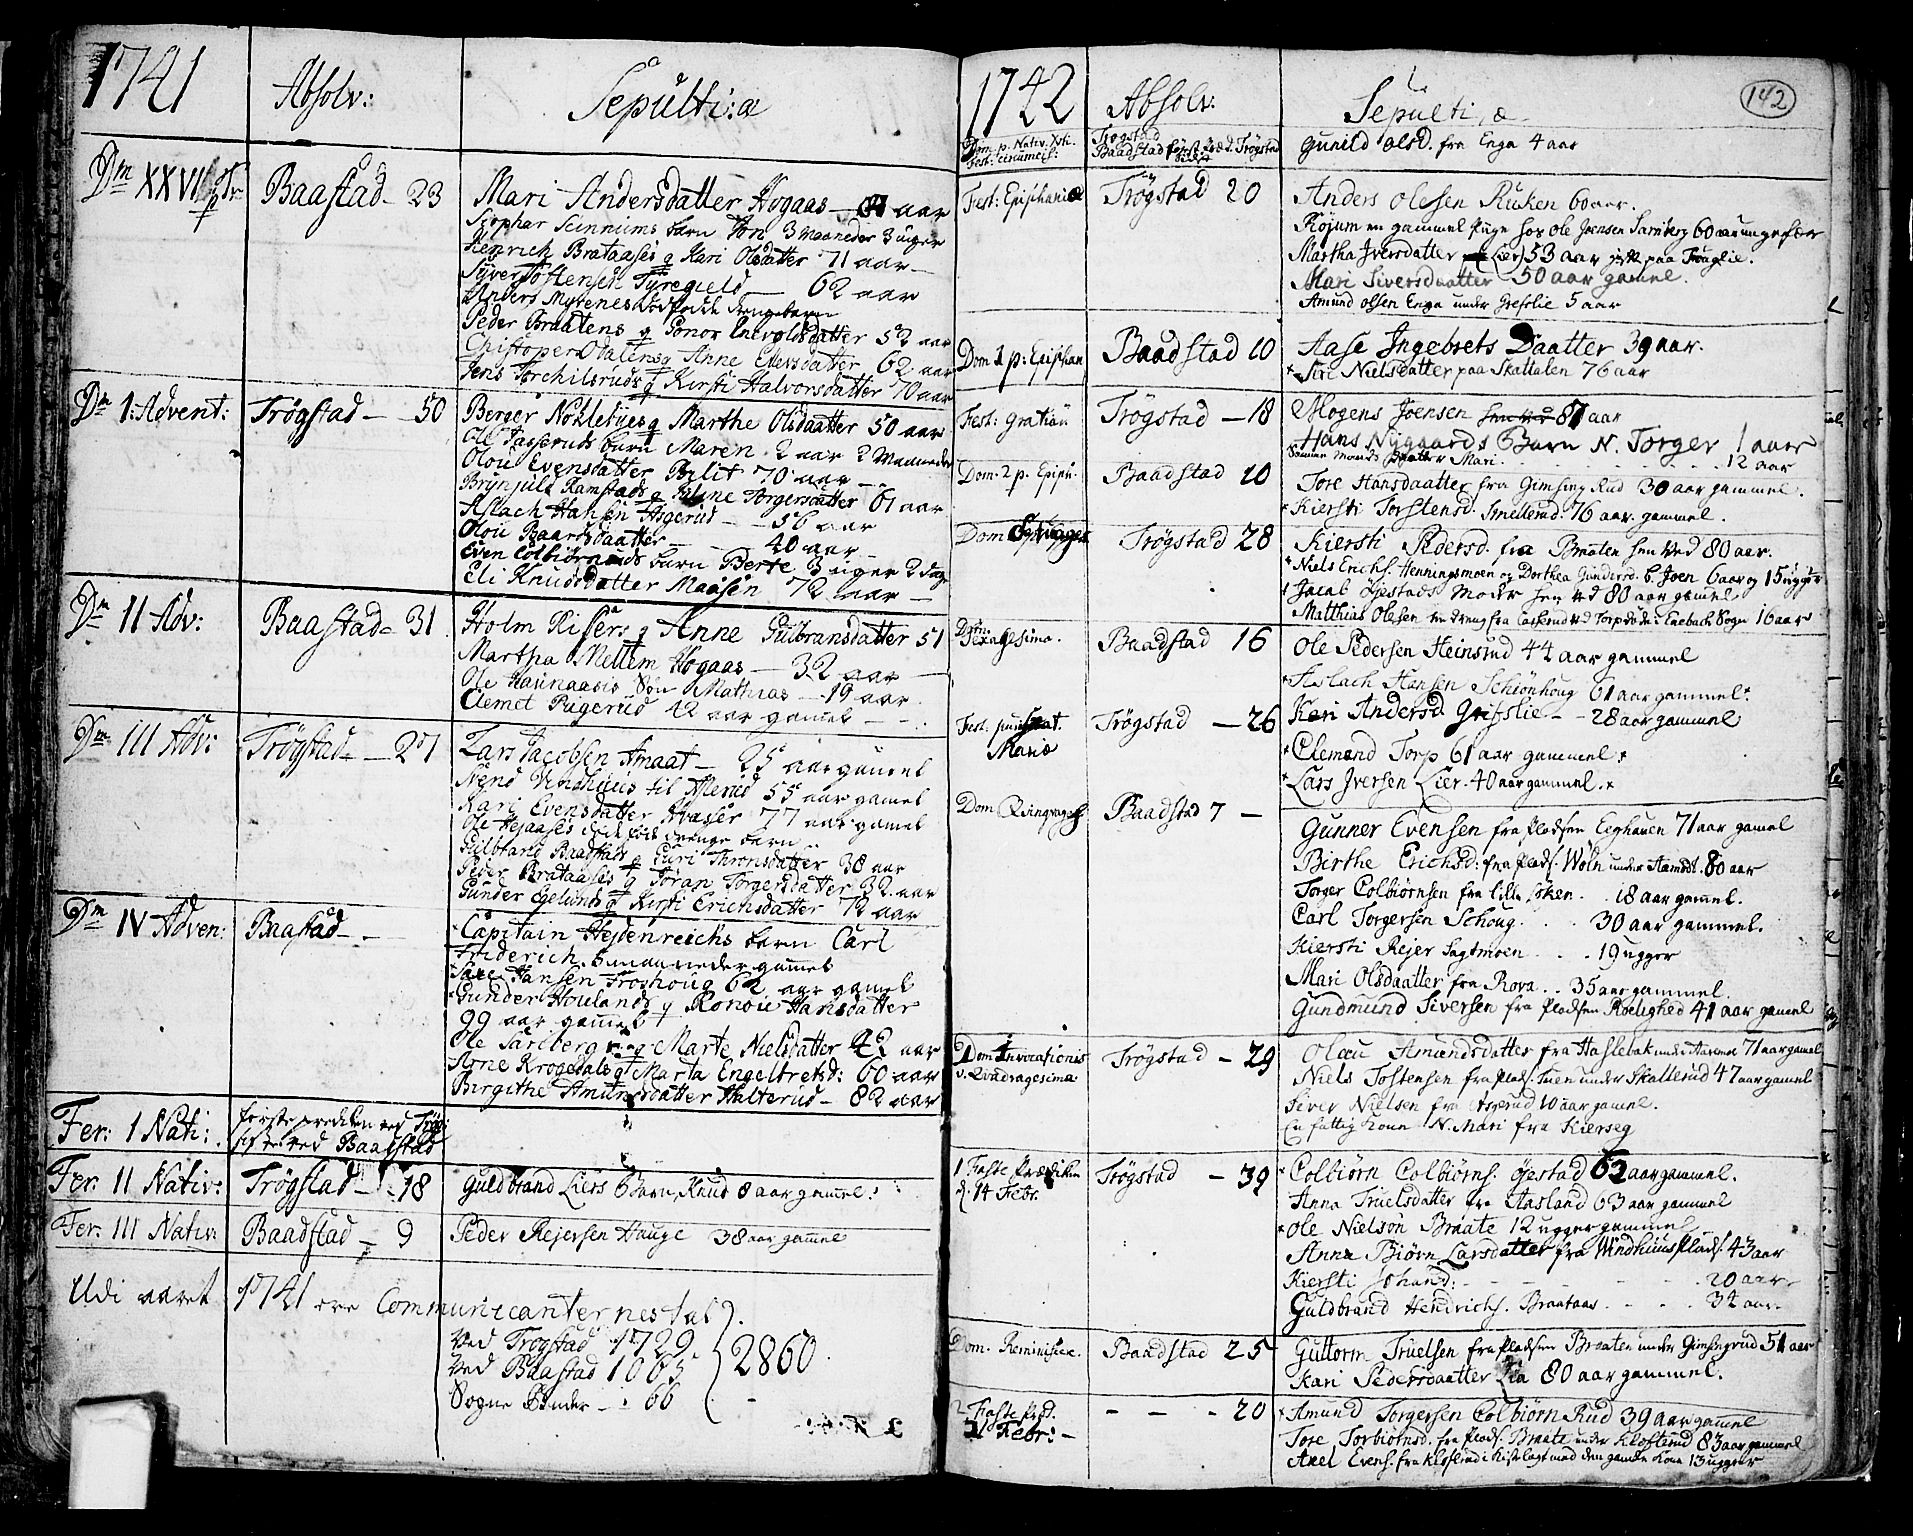 1741 Absolv: Sepulti:æ
Dm XXVI p Tr Baastad - 23 Mari Andersdatter Hogaas aar
barn Jon 3 Maaneder 3 uger
Henrich Brataases q Kari Olsdatter 71 aar
Syver Toftensen Tyregield - 62 aar
Anders Myrenes dødfødde drengebarn
Peder Braatens q Gonor Enevoldsdatter 52 aar
Christopher Odalens q Anne Elevsdatter 62 aar
Jens Torchilsruds q Kirsti Halvorsdatter 70 aar
Dn I: Advent: Trøgstad - 50 Berger Nohlebyes q Marthe Olsdaatter 50 aar
Ole barn Maren 2 aar 2 Maaneder
Olou Evensdatter 70 aar
Brynjuls Ramstads q Torgersdatter 61 aar
Aslach Hansen Asgerud - 56 aar
Olou Baardsdaatter - 40 aar
Even Colbiørnruds barn Berte 3 uger 2 dage
Eli Knudsdatter Maasen 72 aar
Dn II Adv: Baastad - 31 Holm Risers q Anne Gulbransdatter 51
Martha Mellem Hogaas - 32 aar
Ole Søn Mathias - 19 aar
Clemet Rigerud 42 aar gamel
Dm III Adv: Trøgstad - 27 Lars Jacobsen Amaat - 25 aar gamel
Svend til 55 aar gamel
Kari Evensdatter 77 aar gamel
Ole dødfødt drenge barn
Gulbrand Baastads q Guri Thronsdatter 38 aar
Peder Brataases q Jøran Torgersdatter 32 aar
Gunder Egelunds q Kirsti Erichsdatter 72 aar
Dm IV Adven: Baastad - Capitain Hejdenreichs barn Carl
Friderich. 6 maaneder gamel
Hansen Froshoug 62 aar gamel
Gunder Houlands q Ronou Hansdatter
99 aar gamel
Ole Sarlberg q Marte Nielsdatter 42 aar
Arne Krogedals q Marta Engelbretsd: 60 aar
Birgithe Amundsdatter Halterud - 82 aar
Fer: I Nati: første prediken ved Trøg:
siste ved Baastad
Fer: II Nativ: Trøgstad - 18 Guldbrand Liers Barn, Knud 8 aar gamel
Fer: III Nativ: Baadstad - 9 Peder Rejersen Hauge 38 aar gamel
Udi aaret 1741 ere Communicanternes tal
ved Trøgstad 1729
ved Baastad 1065
2860
Sogne Bønder - 66
1742 Absolv: Sepulti, æ 142
Dom. p. Nativ. Xti. Trøgstad
Fest: circumcis: Baadstad Trøgstad Gunild Olsd. fra Enga 4 aar
Fest: Epiphaniæ Trøgstad 20 Anders Olesen Rusken 60 aar.
en gammel Pige hos Ole Joensen 60 aar ungefær
Martha Iversdatter Lier 53 aar
Mari Siversdaatter 50 aar gamel.
Amund Olsen Enga under Grefslie 5 aar
Dom 1 p: Epiphan Baadstad 10 Aase Ingebrets Daatter 39 aar.
Siri Nielsdatter paa Skattalen 76 aar
Fest: Gratiar Trøgstad - 18 Mogens Joensen 87 aar
Hans Nygaards Barn N. Torger 1 aar
Samme Mands Daatter Mari 12 aar
Dom. 2 p. Epiph. Baadstad 10 Tore Hansdaatter fra Gimsing Rud 30 aar gammel.
Kiersti Torstensd. Smellerud 76 aar. gammel.
Dom Septuages Trøgstad 28 Kiersti Pedersd. fra Braaten hen ved 80 aar.
Niels Erichs. Henningsmoen og Dorthea Gundersd. b. Joen 6 aar og 15 ugger
Jacob Gjestads Moder hen ved 80 aar gamel
Matthias Olesen fra ved i Enebach Sogn 16 aar
Dom. Sexagesima. Baadstad 16 Ole Pedersen Heinsrud 44 aar gammel
Aslach Hansen Schiønhoug 61 aar gammel
Fest. purificat. Mariæ Trøgstad - 26 Kari Andersd Grefslie - - 28 aar gammel
Clemend Torp 61 aar gammel
Lars Iversen Lier. 40 aar gammel.
Dom Qvinqvages Baadstad 7 - Gunner Evensen fra Pladsen Eeghauen 71 aar gamel
Birthe Erichsd: fra Plads. under 80 aar
Torger Colbiørnsen fra lille . . 18 aar gammel.
Carl Torgersen Schoug . . . 30 aar gammel.
Kiersti Rejer Sagtmoen . . . 19 ugger
Mari Olsdaatter fra Rova . . 35 aar gammel.
Gundmund Siversen fra Pladsen Roelighed 41 aar gamel
Dom Invocationis Trøgstad - 29 Olou Amundsdatter fra Haslebak under 71 aar gamel
v. Qvadragesima Niels Tostensen fra Plads. Tuen under Skallerud 47 aar gamel
Siver Nielsen fra Asgerud 10 aar gamel.
En fattig Kone N. Mari fra Kierseg
1 Faste Prædiken Trøgstad - 39 Colbiørn Colbiørns. Gjestad 62 aar gammel.
d. 14 Febr. Anna Truelsdatter fra Aasland 63 aar gammel
Ole Nielsøn Braate 12 ugger gammel
Anna Biørn Larsdatter fra Windhuus Plads. 43 aar
Kiersti Johand: - - - 20 aar
Guldbrand Hendrichs. Braataas . . . 34 aar.
Dom. Reminiscere. Baadstad 25 Guttorm Truelsen fra Pladsen Braaten under Gimsingrud 51 aar
Kari Pedersdaatter Lia 80 aar gammel.
2 Faste Præd. - - - 20 Amund Torgersen Colbiørn Rud 39 aar gamel
21 Febr: - Tore Torbiørnsd. fra Plads. Braate under Klosterud 83 aar gammel
Axel Evens. fra Klosterud i Kiste lagt med den gamle Kone 13 ugger